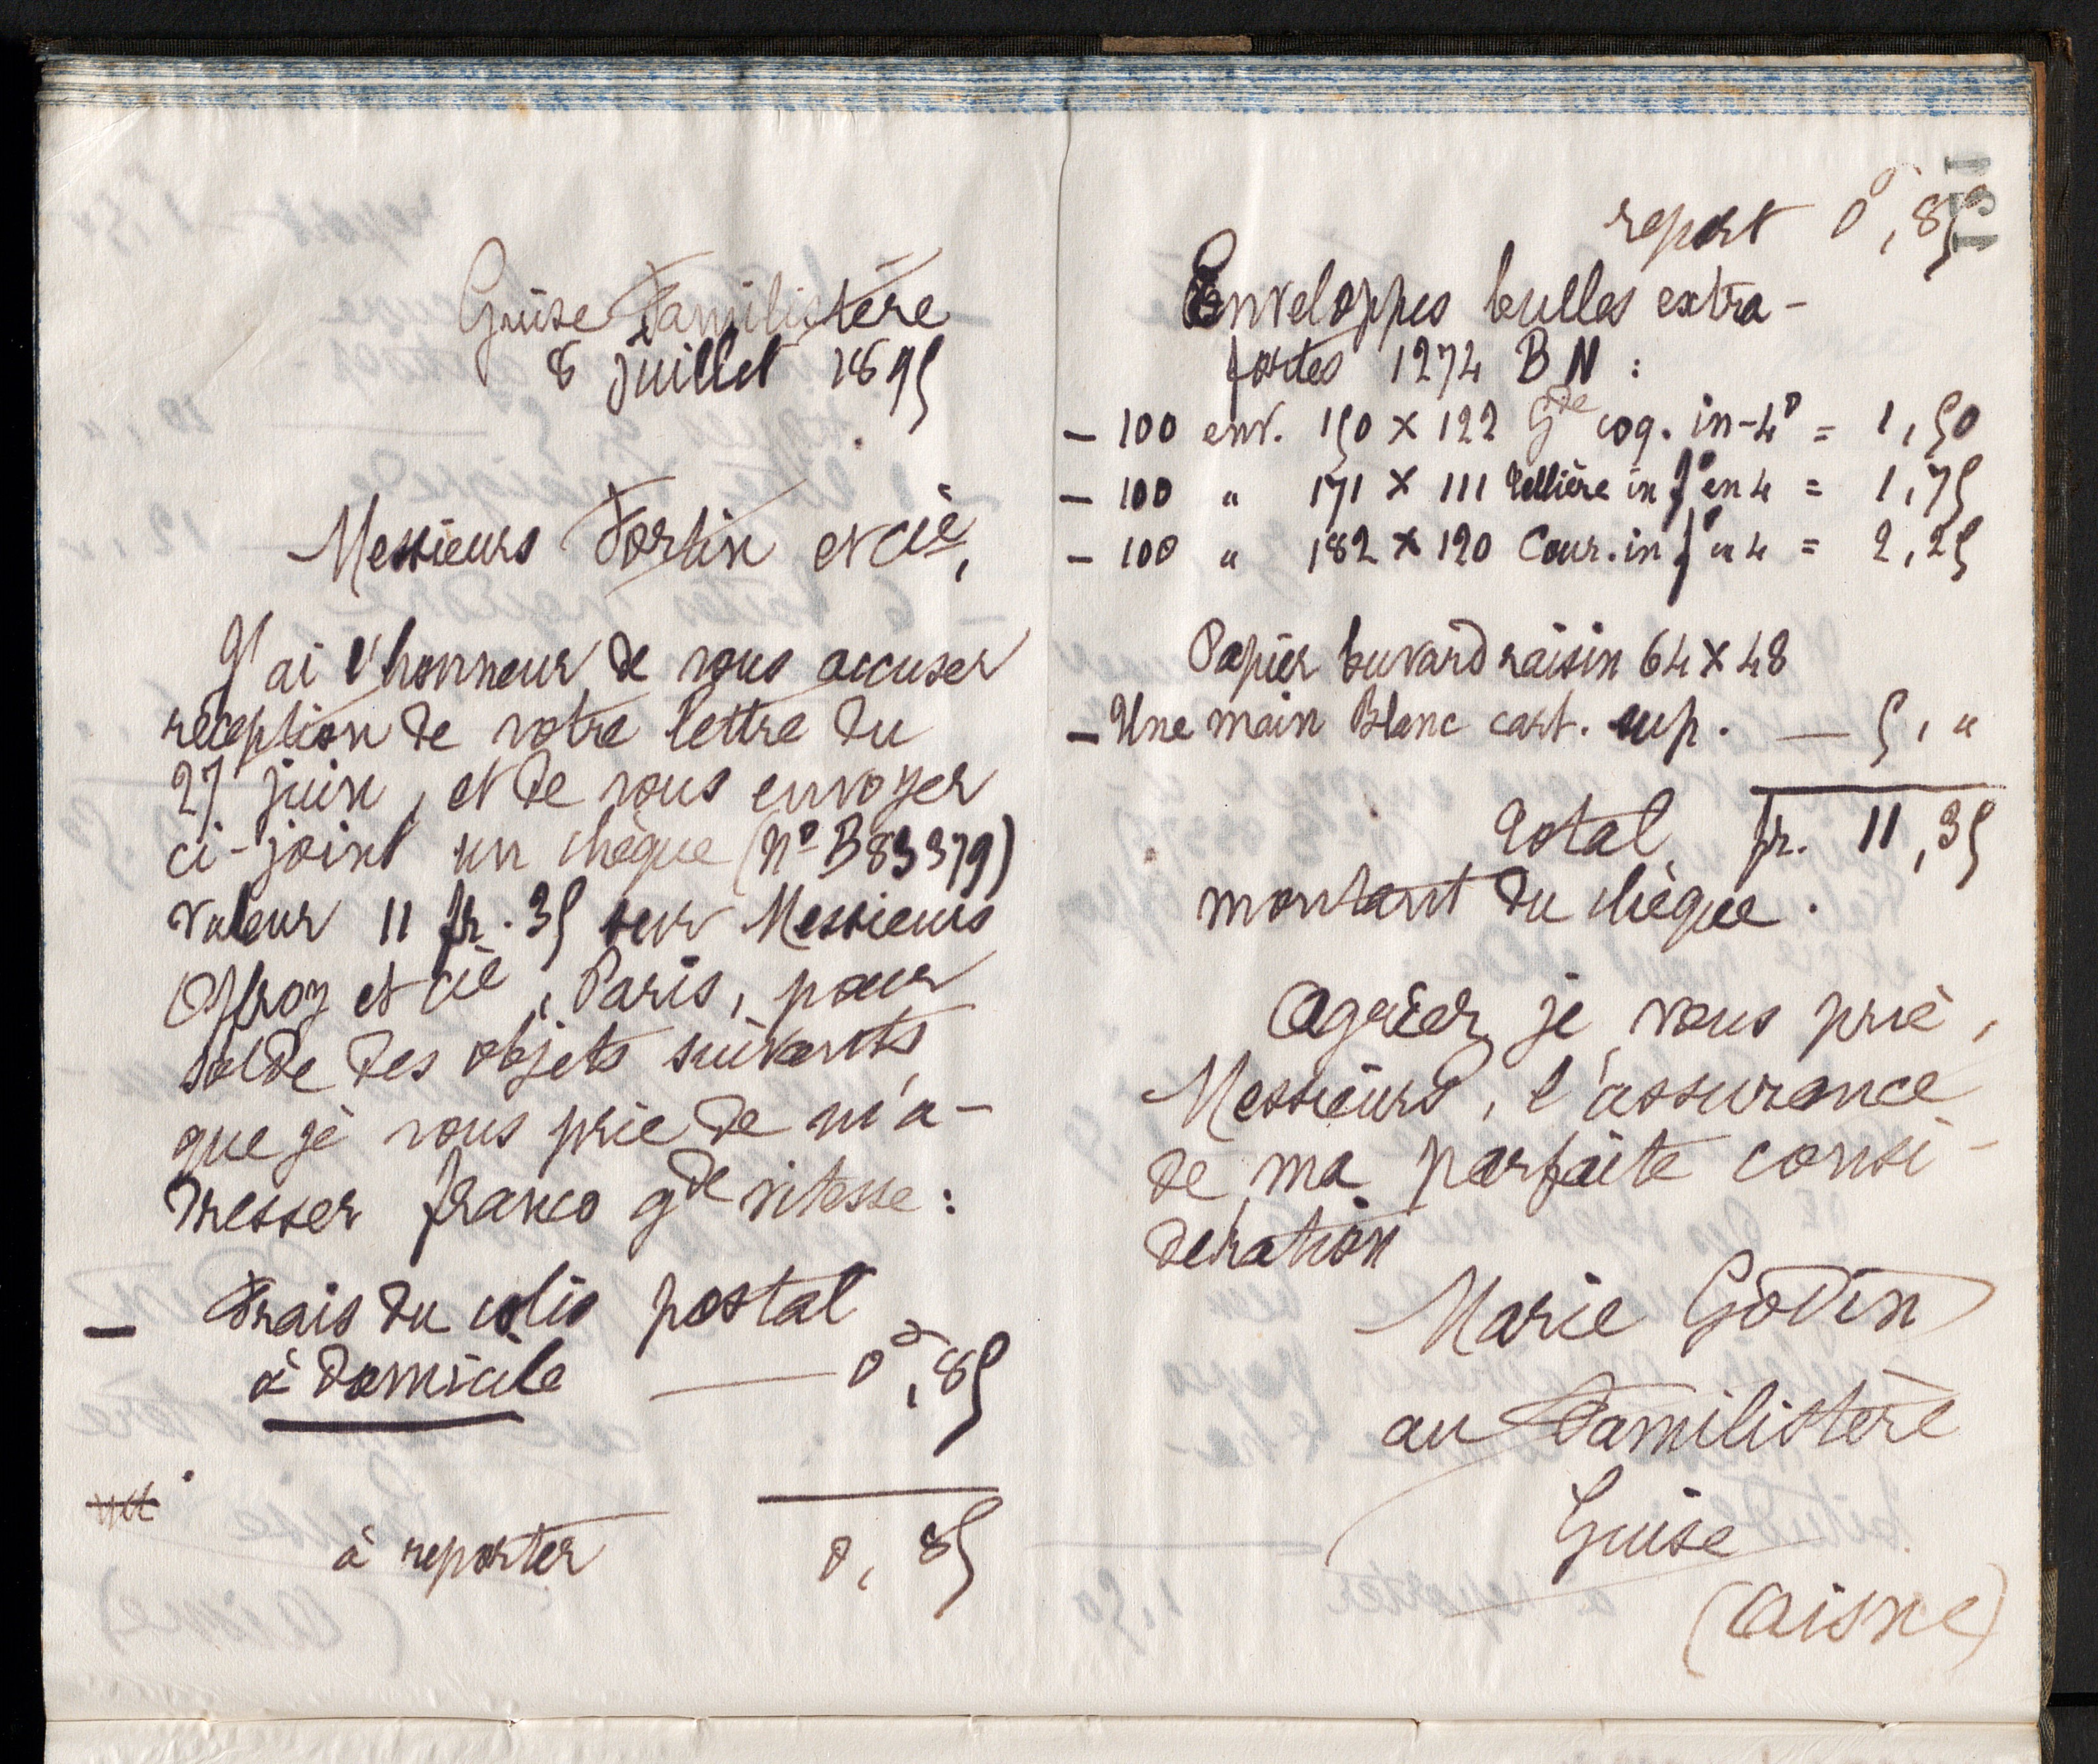 Guise Familistère
8 juillet 1895
Messieurs Fortin et Cie,
J'ai l'honneur de vous accuser
réception de votre lettre du
27 juin, et de vous envoyer
ci-joint un chèque (N° B83379)
valeur 11 fr. 35 sur Messieurs
Offroy et Cie, Paris, pour
solde des objets suivants,
que je vous prie de m'a-
dresser franco gde vitesse :
- Frais du colis postal
à domicile — 0,85
à reporter 0,85
151
report 0,85
Enveloppes bulles extra-
fortes 1274 BN :
- 100 env. 150 x 122 Gde coq. in-4° = 1,50
- 100 " 171 x 111 Tellière in f° en 4 = 1,75
- 100 " 182 x 120 Cour. in f° " 4 = 2,25
Papier buvard raisin 64 x 48
- Une main Blanc cart. sup. — 5, "
Total fr. 11,35
montant du chèque.
Agréer, je vous prie,
Messieurs, l'assurance
de ma parfaite consi-
dération
Marie Godin
au Familistère
Guise
(Aisne)